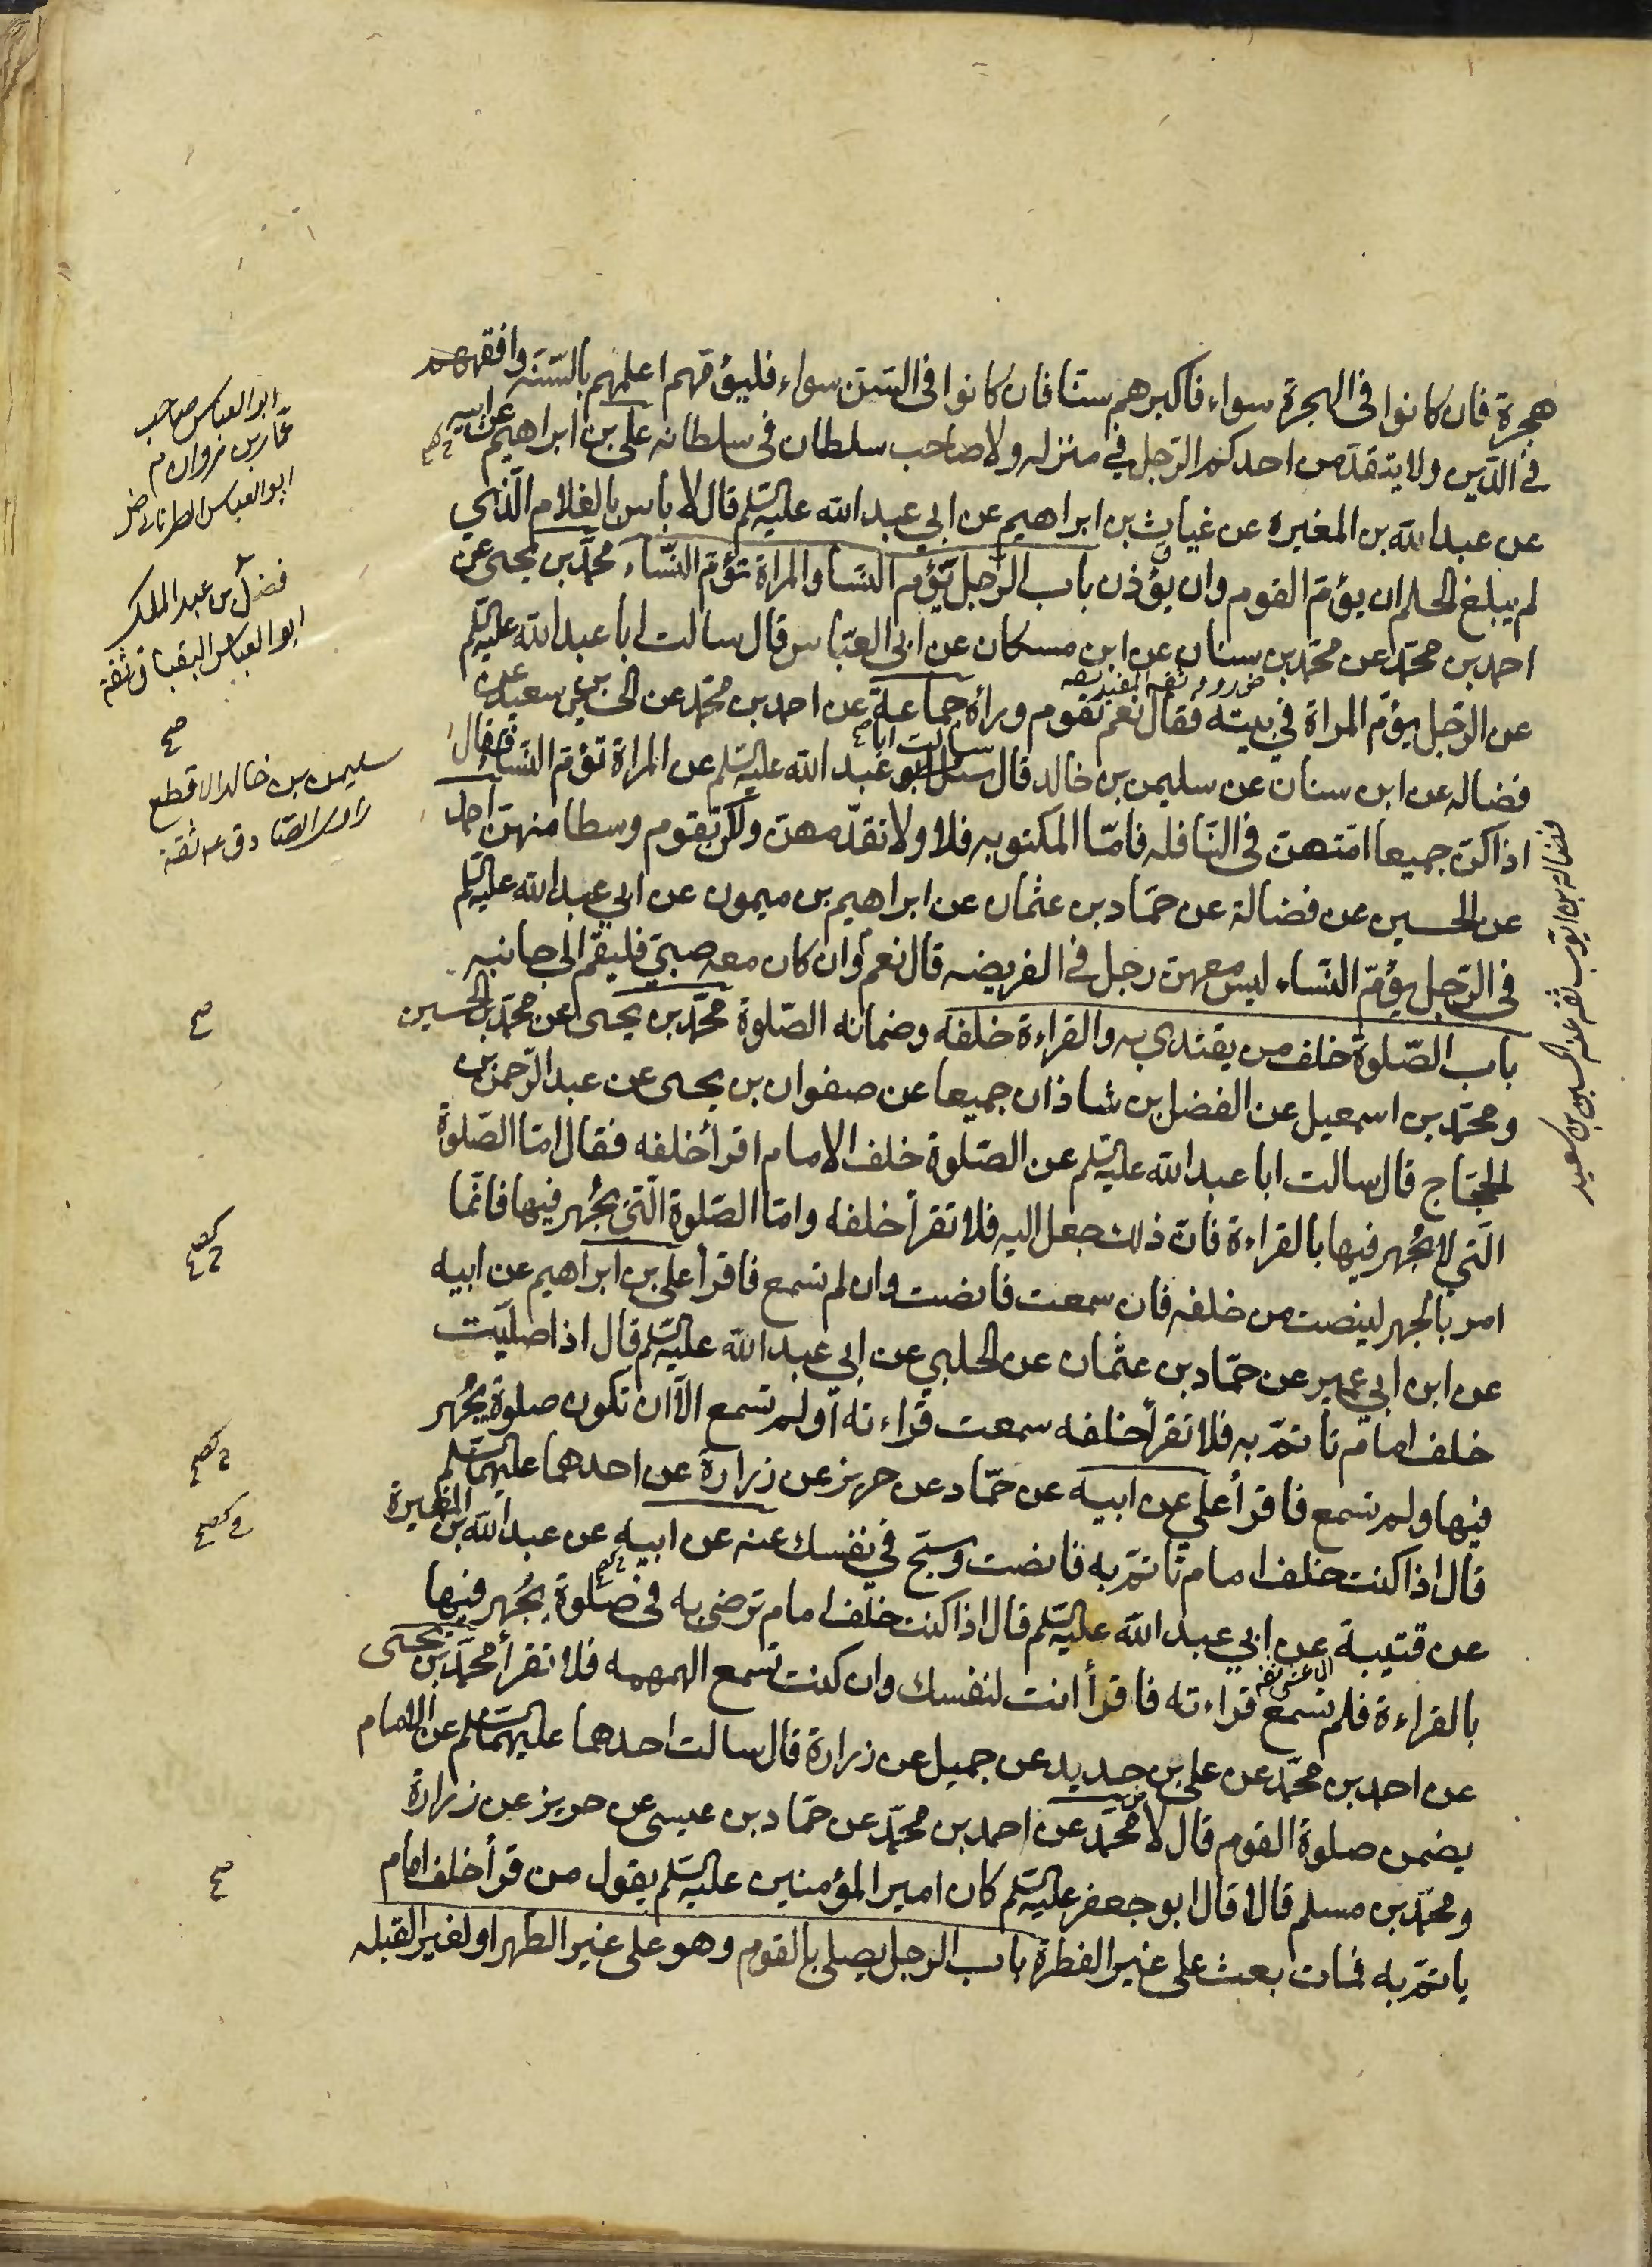 هجرة فان كانوا فى الهجرة سواء فاكبرهم سنّا فان كانوا فى السّن سواء فليؤمّهم اعلمهم بالسّنه وافقههم
فى الدّين ولا يتقدّمن احدكم الرّجل فى منزله ولا صاحب سلطان فى سلطانه على بن ابراهيم عن ابيه
عن عبد الله بن المغيره عن غياث بن ابراهيم عن ابي عبد الله عليه السّلم قال لا باس بالغلام الّذي
لم يبلغ الحلم ان يؤمّ القوم وان يؤذن باب الرّجل يؤم النسا والمراة تؤمّ النّساء محمّد بن يحيى عن
احمد بن محمّد عن محمّد بن سنان عن ابن مسكان عن ابى العبّاس قال سالت ابا عبد الله عليه السّلم
عن الرّجل يؤمّ المراة في بيته فقال نعم تقوم وراءه جماعة عن احمد بن محمّد عن الحسين بن سعيد عن
فضاله عن ابن سنان عن سليمن بن خالد قال سالت ابا عبد الله عليه السّلم عن المراة تؤمّ النّسا فقال
اذا كنّ جميعا امّتهن فى النّافله فامّا المكتوبه فلا ولا تقدّمهن ولكن تقوم وسطا منهنّ احمد
عن الحسين عن فضالة عن حمّاد بن عثمان عن ابراهيم بن ميمون عن ابي عبد الله عليه السّلم
فى الرّجل يؤمّ النّساء ليس معهن رجل فى الفريضه قال نعم وان كان معه صبيّ فليقم الى جانبه
باب الصّلوة خلف من يقتدي به والقراءة خلفه وضمانه الصّلوة محمّد بن يحيى عن محمّد بن الحسين
ومحمّد بن اسمعيل عن الفضل بن شاذان جميعا عن صفوان بن يحيى عن عبد الرّحمن بن
الحجّاج قال سالت ابا عبد الله عليه السّلم عن الصّلوة خلف الامام اقرأ خلفه فقال امّا الصّلوة
الّتي لا يجهر فيها بالقراءة فان ذلك جعل اليه فلا تقرأ خلفه وامّا الصّلوة الّتي يجهر فيها فانّما
امر بالجهر لينصت من خلفه فان سمعت فانصت وان لم تسمع فاقرأ على بن ابراهيم عن ابيه
عن ابن ابي عمير عن حمّاد بن عثمان عن الحلبي عن ابي عبد الله عليه السّلم قال اذا صلّيت
خلف امام تاتمّ به فلا تقرأ خلفه سمعت قراءته او لم تسمع الّا ان تكون صلوة يجهر
فيها ولم تسمع فاقرأ علي عن ابيه عن حمّاد عن حريز عن زرارة عن احدهما عليهما السّلم
قال اذا كنت خلف امام تاتمّ به فانصت وسبّح في نفسك عنه عن ابيه عن عبد الله بن المغيرة
عن قتيبة عن ابي عبد الله عليه السّلم قال اذا كنت خلف امام ترضى به فى صلوة يجهر فيها
بالقراءة فلم تسمع قراءته فاقرأ انت لنفسك وان كنت تسمع الهمهمه فلا تقرأ محمّد بن يحيى
عن احمد بن محمّد عن على بن حديد عن جميل عن زرارة قال سالت احدهما عليهما السّلم عن الامام
يضمن صلوة القوم قال لا محمّد عن احمد بن محمّد عن حمّاد بن عيسى عن حريز عن زرارة
ومحمّد بن مسلم قالا قال ابو جعفر عليه السّلم كان امير المؤمنين عليه السّلم يقول من قرأ خلف امام
ياتمّ به فمات بعث على غير الفطرة باب الرجل يصلى بالقوم وهو على غير الطهر او لغير القبله
ابو العباس صاحب
عمّار بن مروان م
ابو العباس الطرنانى ض
فضل بن عبد الملك
ابو العباس البقباق ثقة
صح
سليمن بن خالد الاقطع
راوى الصّادق ع ثقة
فضاله بن ايوب ثقه عنه الحسين بن سعيد